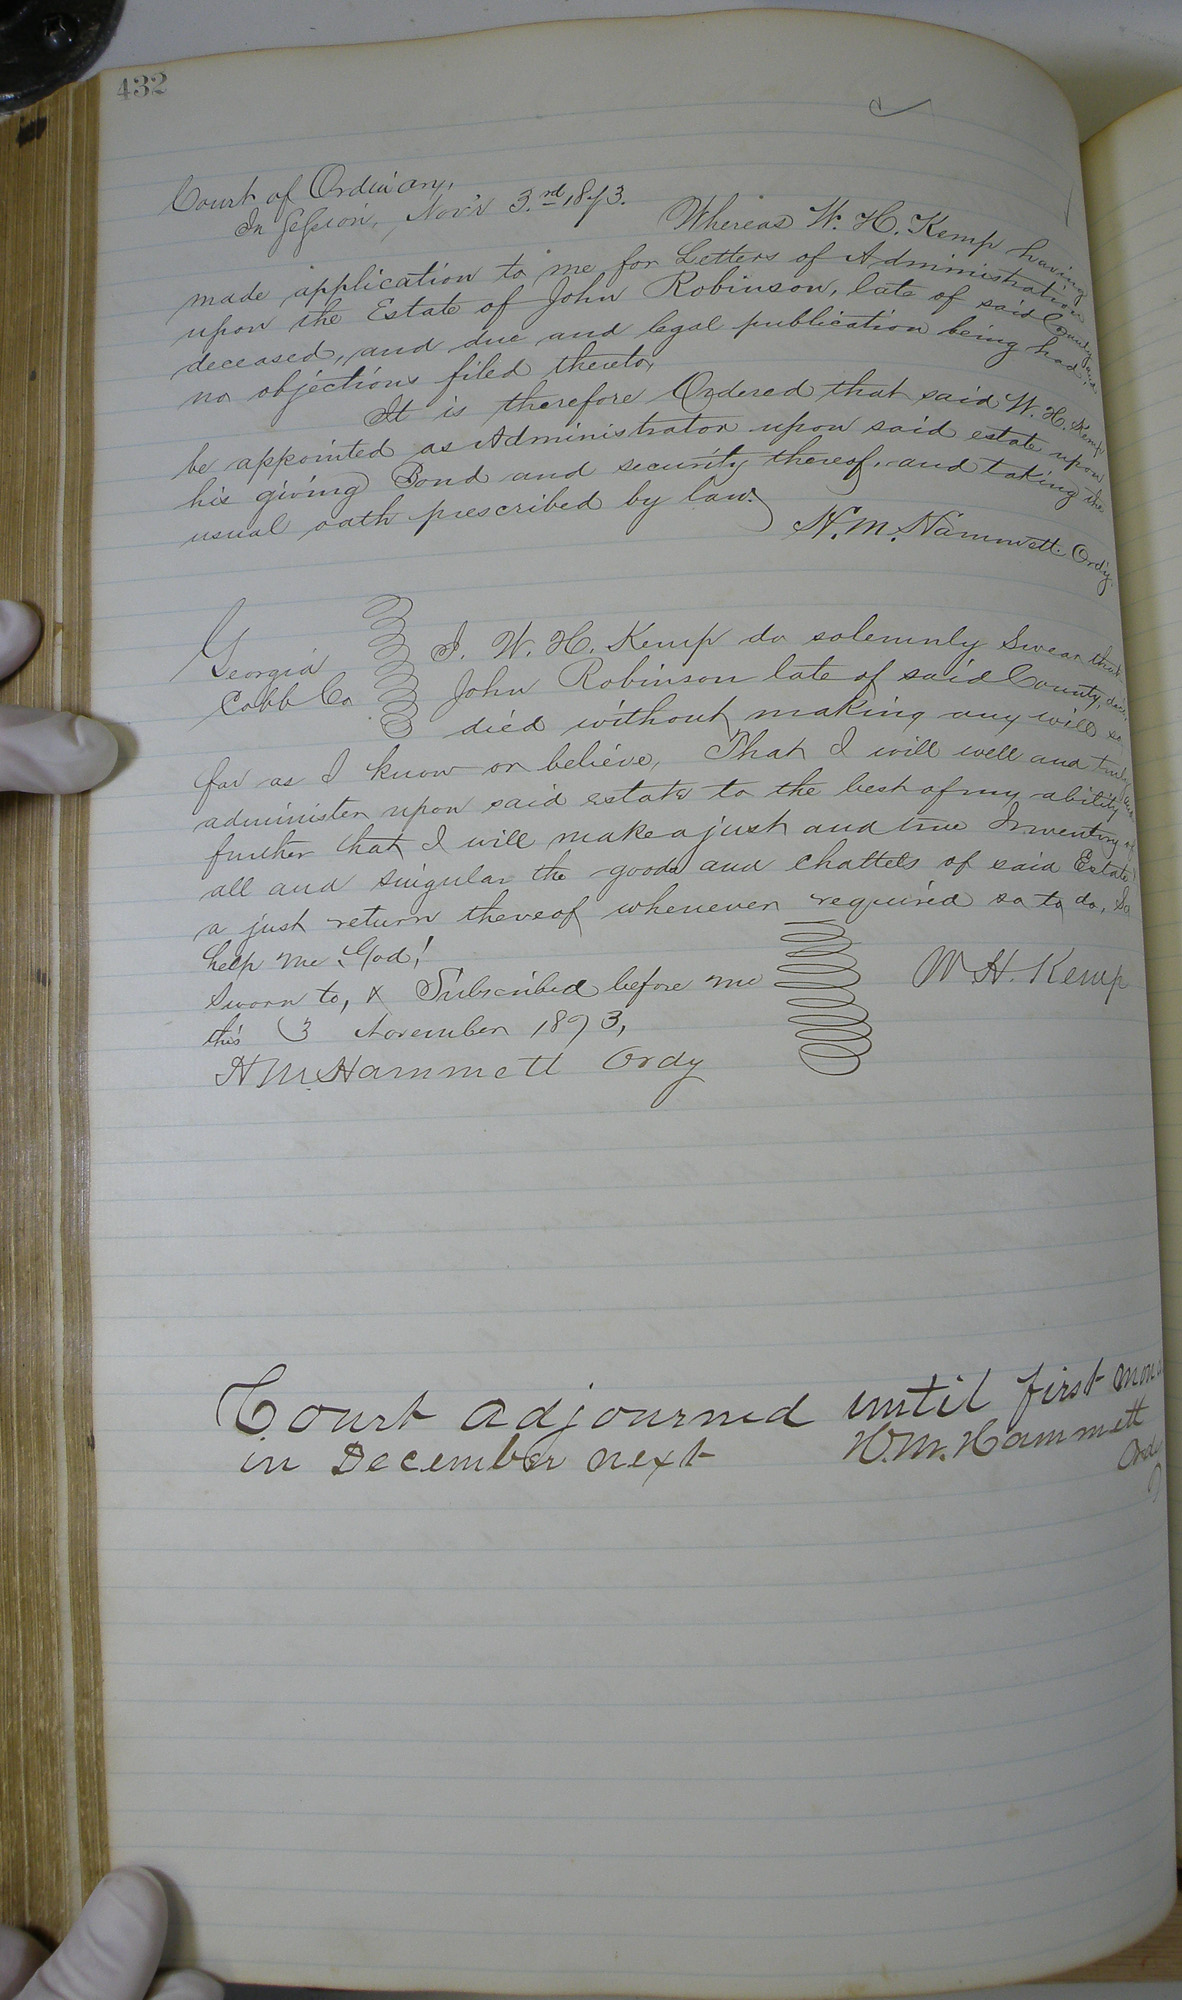 432
Court of Ordinary,
In Session, Nov'r 3.rd 1893.
Whereas W. H. Kemp having
made application to me for Letters of Administration
upon the Estate of John Robinson, late of said County
deceased, and due and legal publication being had, and
no objections filed thereto,
It is therefore Ordered that said W. H. Kemp
be appointed as Administrator upon said estate upon
his giving Bond and security thereof, and taking the
usual oath prescribed by law.
H. M. Hammett Ordy.
Georgia
Cobb Co
I. W. H. Kemp do solemnly Swear that
John Robinson late of said County, dec'd.
died without making any will so
far as I know or believe, That I will well and truly
administer upon said estate to the best of my ability and
further that I will make a just and true Inventory of
all and singular the goods and chattels of said Estate
a just return thereof whenever required so to do, So
help me God!
Sworn to, & Subscribed before me
this 3 November 1893,
H M. Hammett Ordy
W H. Kemp
Court adjourned until first mon
in December next
H. M. Hammett
Ordy